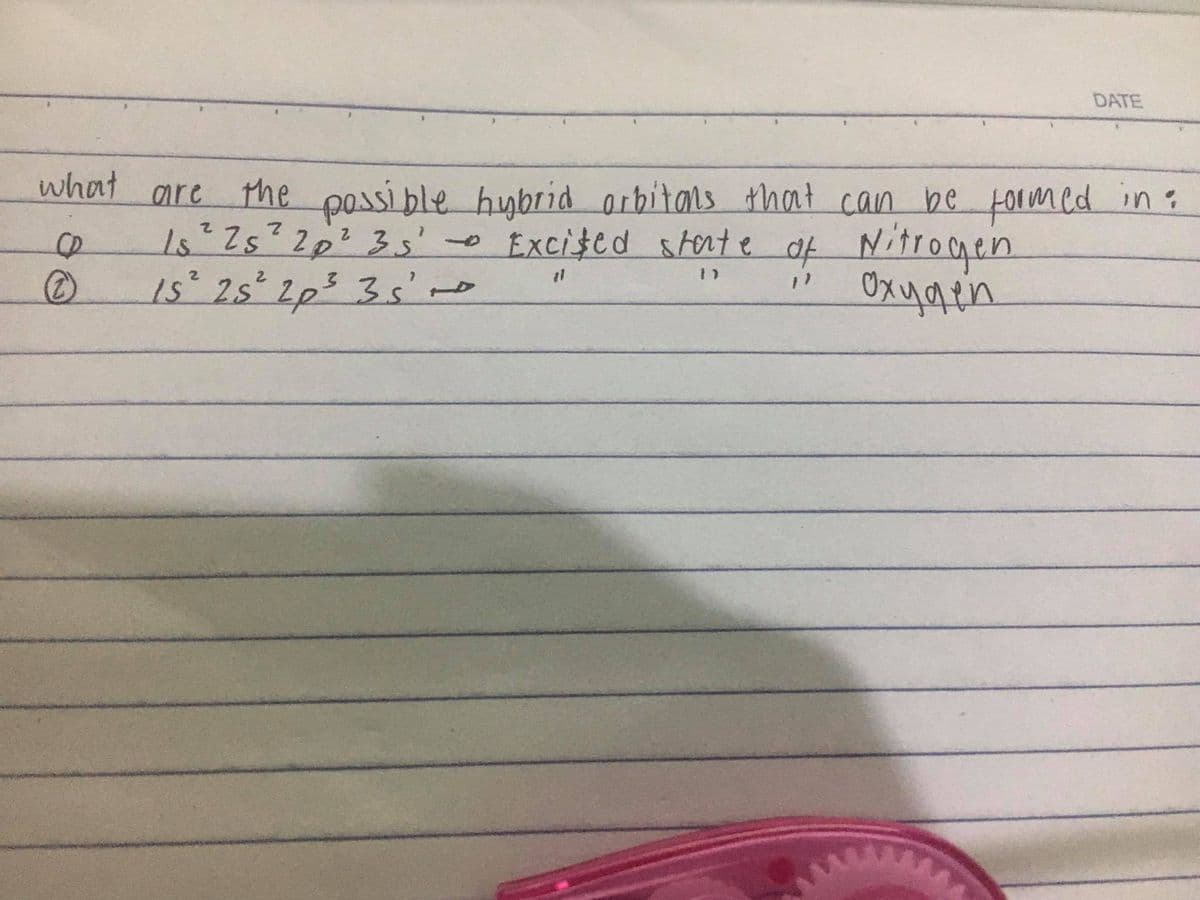 DATE
what are the possible hybrid orbitals that can be formed in :
① 1s² 2s² 2p² 3s' → Excited state of Nitrogen
② 1s² 2s² 2p³ 3s' → " " " Oxygen